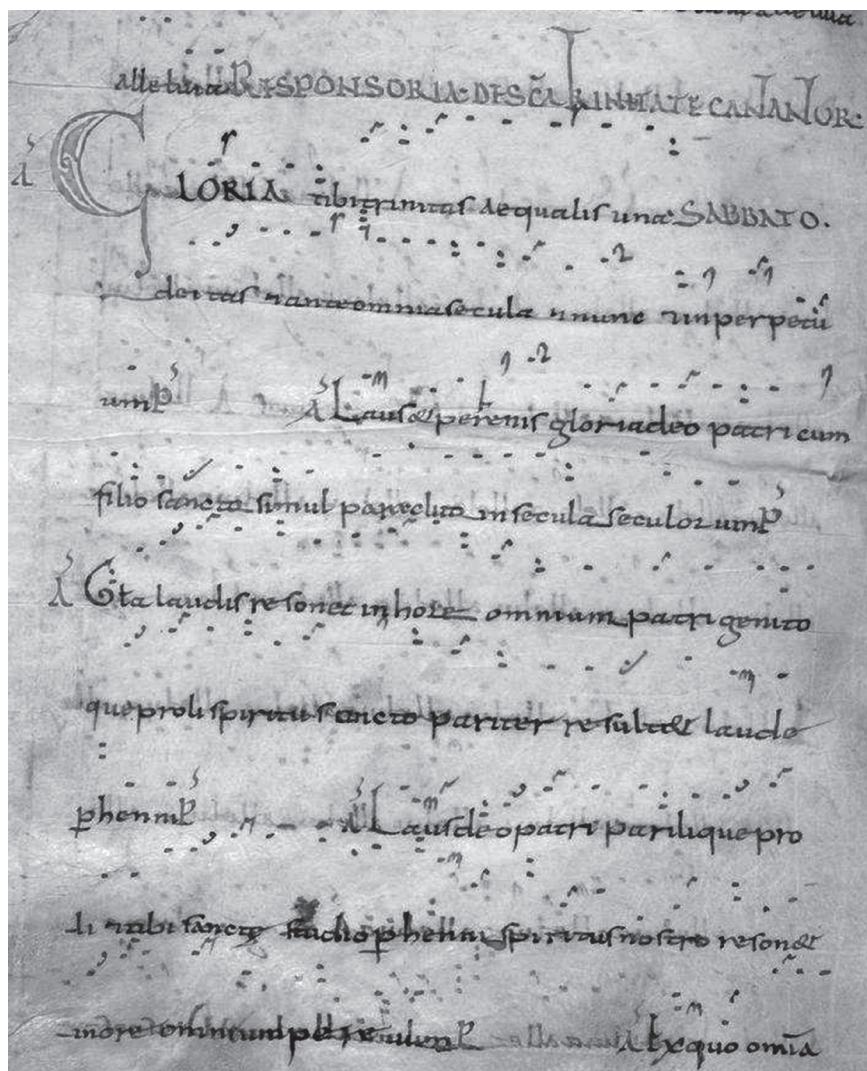 alleluia RESPONSORIA DE SCA TRINITATE CANANTUR:
A GLORIA tibi trinitas aequalis una SABBATO.
deitas & ante omnia secula & nunc & in perpetu
um P A Laus & perennis gloria deo patri cum
filio sancto simul paraclito in secula seculorum P
A Gła laudis resonet in hore omnium patri genito
que proli spiritu sancto pariter result& laude
phenni P A Laus deo patri parilique pro
li & tibi sancte studio phenni spiritus nostro reson&
in ore omne P A Ex quo omia